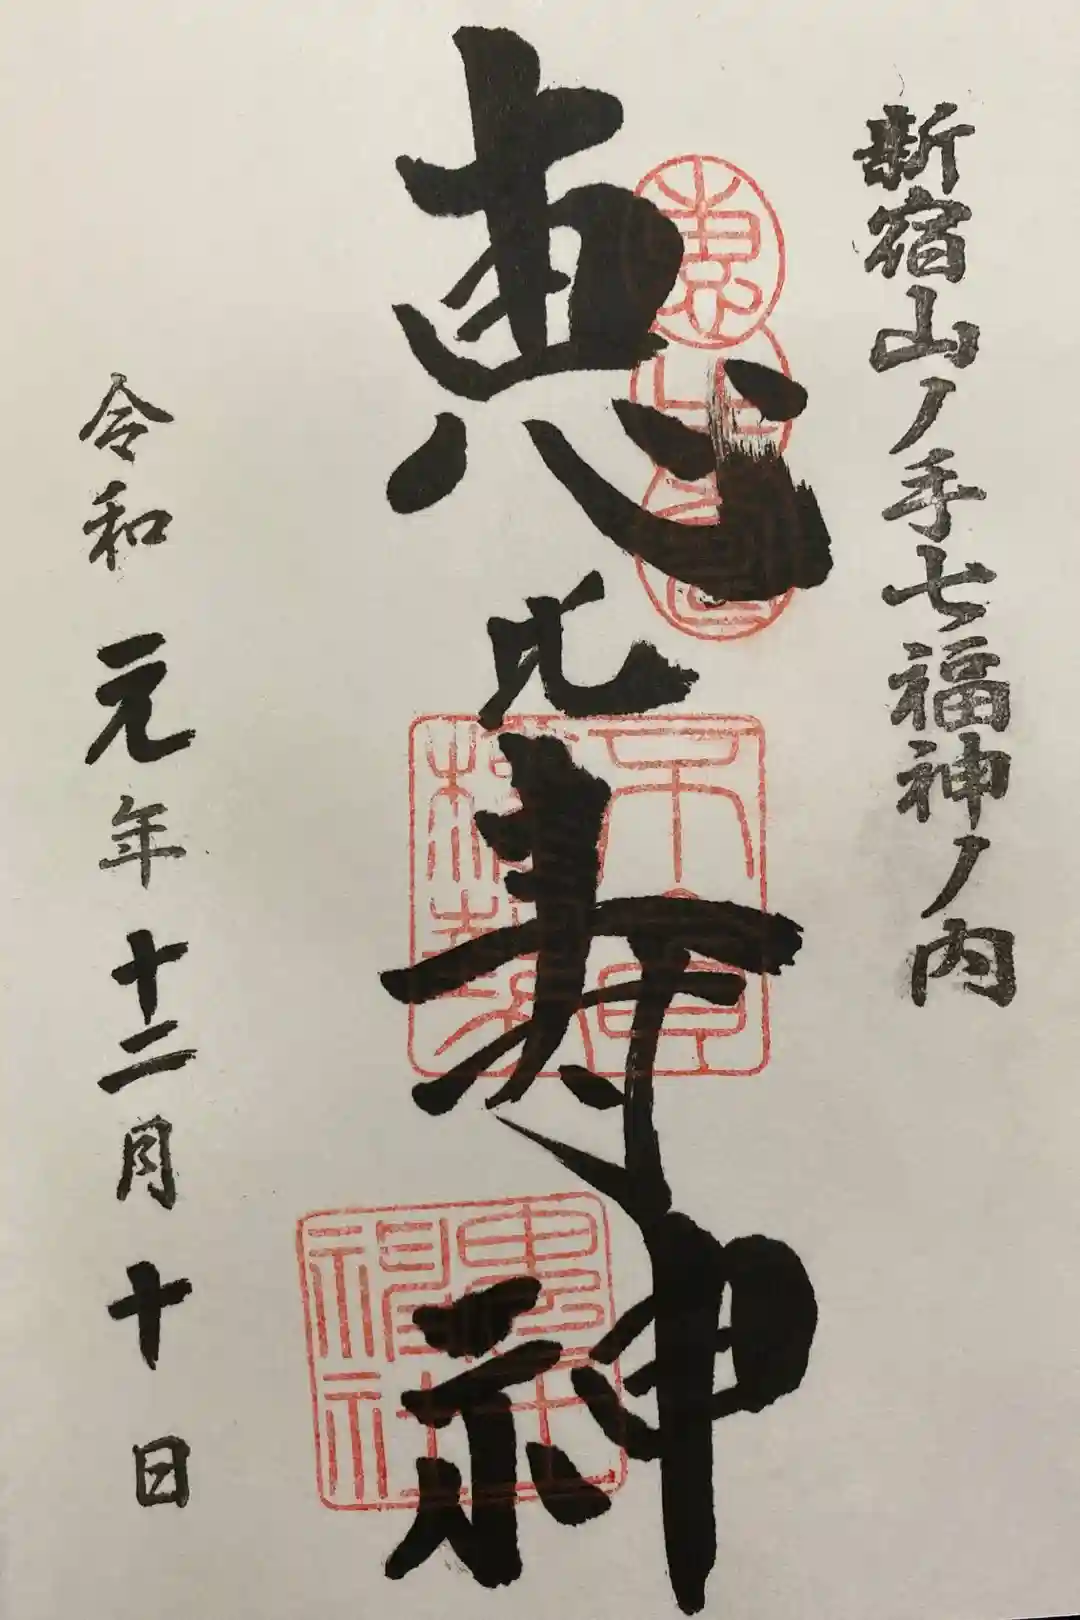 新宿山ノ手七福神ノ内
恵比寿神
令和元年十二月十日